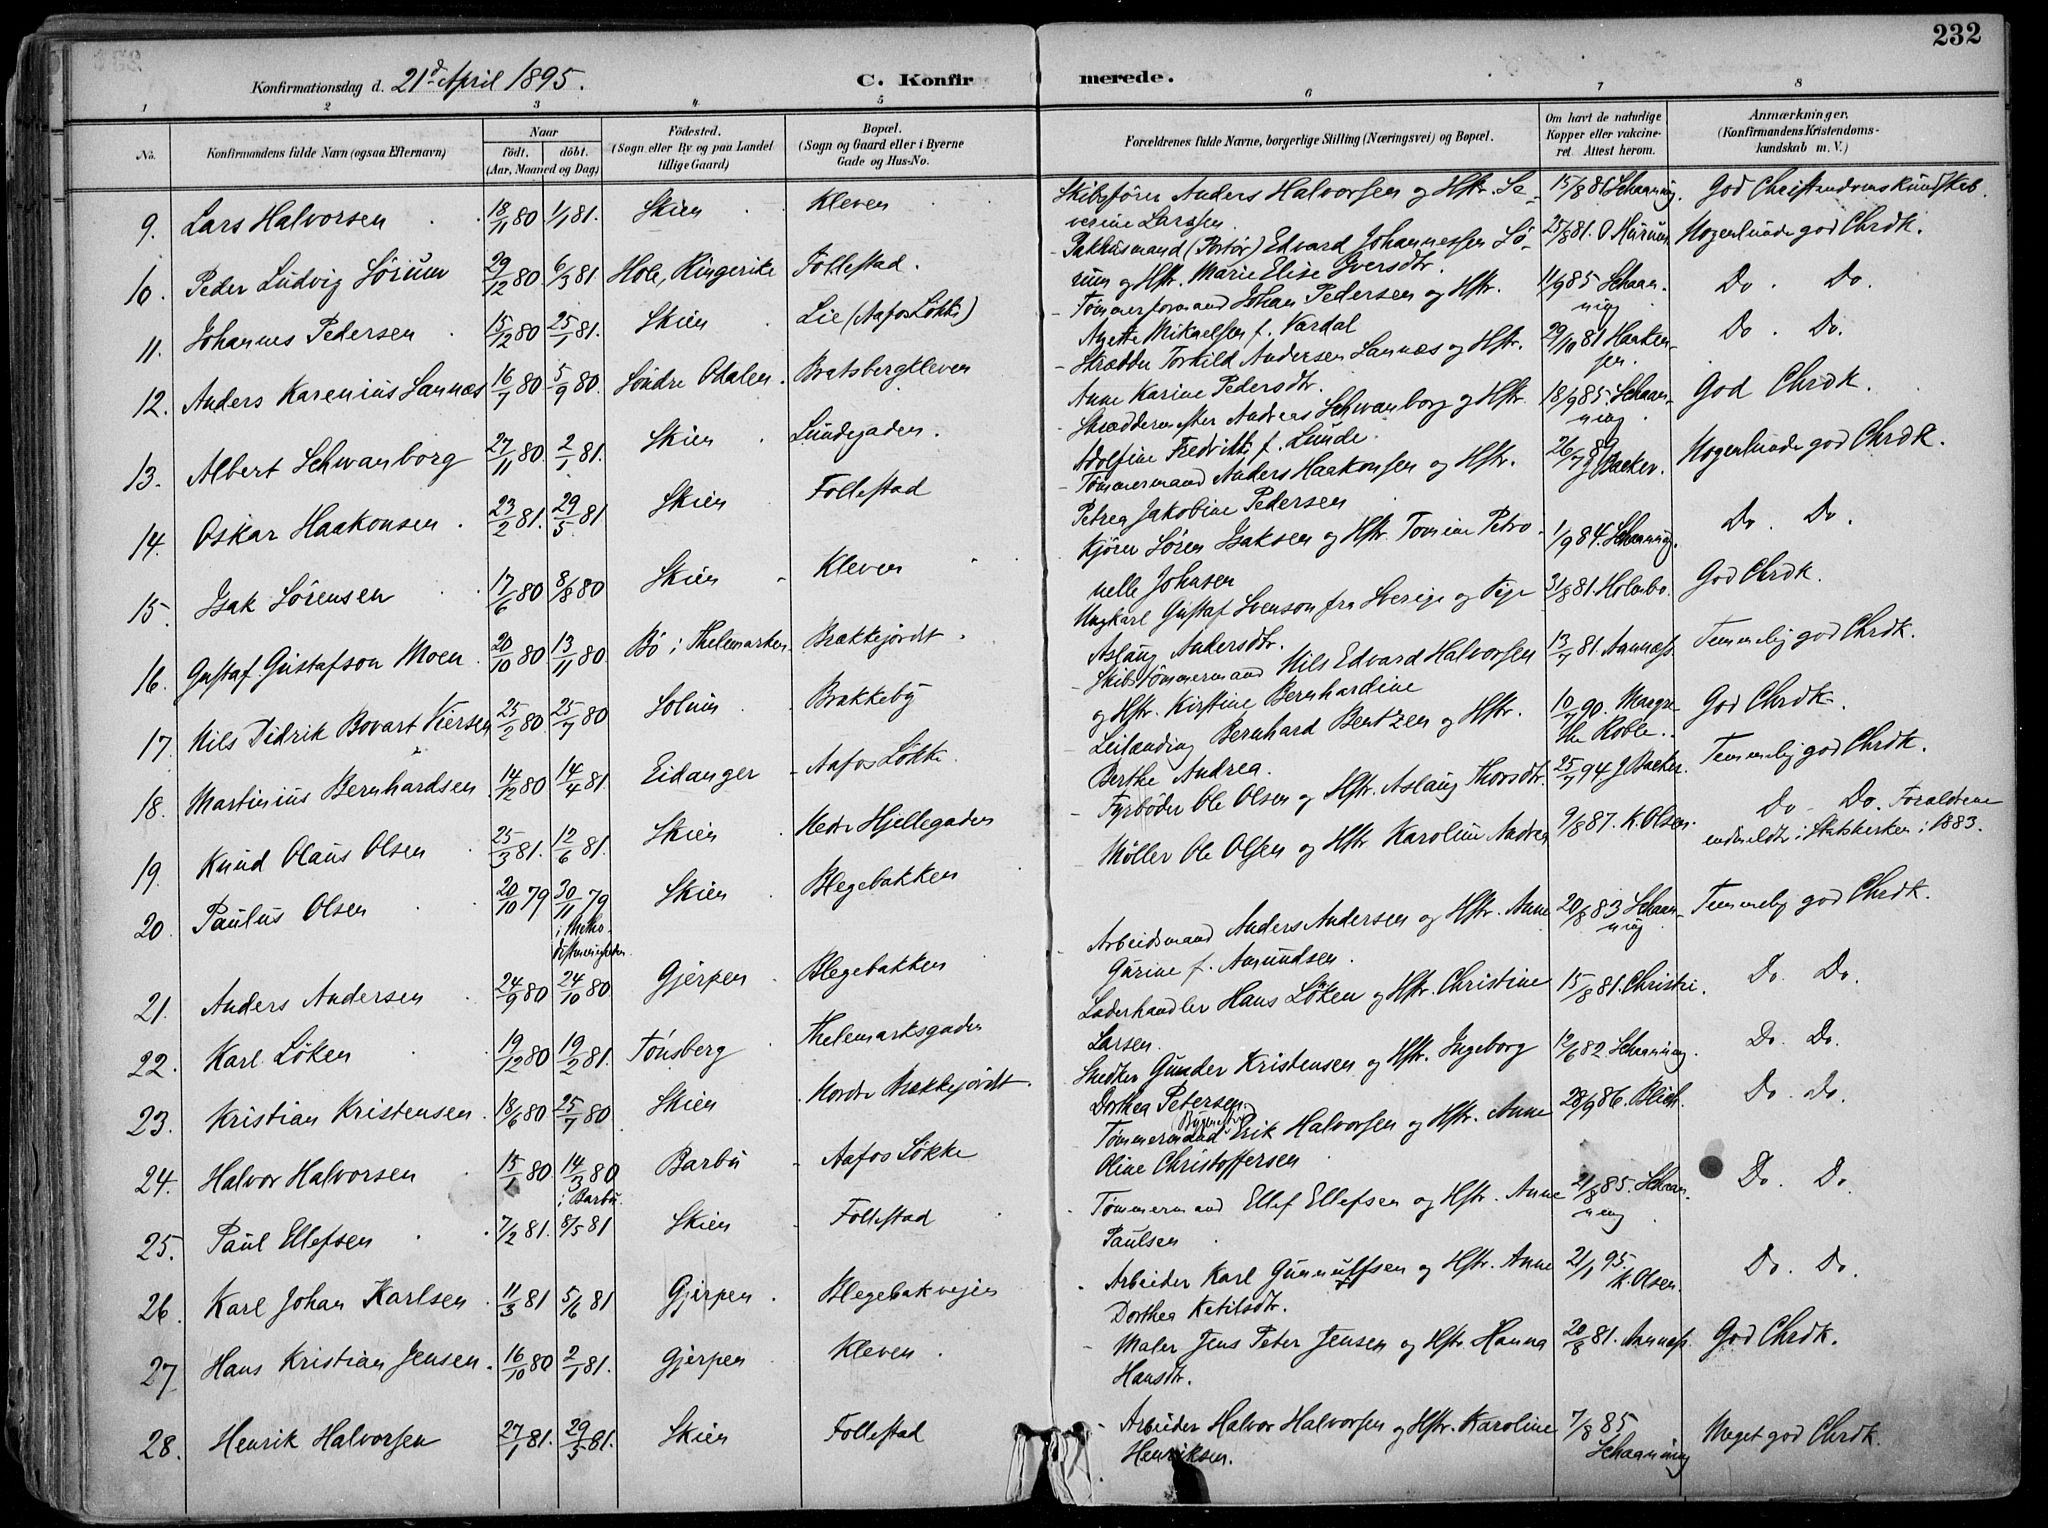 232
Konfirmationsdag d. 21d April 1895.
C. Konfirmerede.
1 2 3 4 5 6 7 8
No.
Konfirmandens fulde Navn (ogsaa Efternavn)
Naar
født, døbt.
(Aar, Maaned og Dag)
Fødested.
(Sogn eller By og paa Landet
tillige Gaard)
Bopæl.
(Sogn og Gaard eller i Byerne
Gade og Hus-No.
Forældrenes fulde Navne, borgerlige Stilling (Næringsvei) og Bopæl.
Om havt de naturlige
Kopper eller vaccine-
ret. Attest herom.
Anmærkninger.
(Konfirmandens Kristendoms-
kundskab m. V.)
9. Lars Halvorsen 18/11 80 1/1 81. Skien Kleven
Skibsfører Anders Halvorsen og Hstr. Se-
verine Larssen
15/8 86 Schaaning. God Christendomskundskab
10. Peder Ludvig Sörum 29/12 80 6/3 81. Hole, Ringerike Follestad.
Pakhusmand (Portør) Edvard Johannessen Sö-
rum og Hstr. Marie Elise Iversdtr.
25/8 81. O Mürum Nogenlunde god Chrdk.
11. Johannes Pedersen 15/12 80 25/1 81. Skien Lie (Aafos Løkke)
Tømmerformand Johan Pedersen og Hstr.
Anette Mikaelsen f. Vardal
11/9 85 Schaan-
ning
Do. Do.
12. Anders Karenius Sannæs 16/7 80 5/9 80. Söndre Odalen. Bratsbergkleven
Skrædder Torkild Andersen Sannæs og Hstr.
Anne Karine Pedersdtr.
29/10 81 Haaken-
sen
Do. Do.
13. Albert Schwanborg 27/11 80. 2/1 81. Skien Lundegaden.
Skræddermester Andreas Schwanborg og Hstr.
Adolfine Fredrikke f. Lunde.
18/9 85. Schaan-
ning
God Chrdk.
14. Oskar Haakonsen 23/2 81. 29/5 81 Skien Follestad
Tømmermand Anders Haakonsen og Hstr.
Petrea Jakobine Pedersen
26/7 89 J Backer. Nogenlunde god Chrdk.
15. Isak Sörensen 17/6 80 8/8 80 Skien Kleven
Kjörer Sören Isaksen og Hstr. Tomine Petro-
nelle Johnsen
1/9 84. Schaaning. Do. Do.
16. Gustaf Gustafson Moen 20/10 80 13/11 80 Bö i Thelemarken Brækkejordet
Ungkarl Gustaf Svenson fra Sverige og Pige
Aslaug Andersdtr.
31/8 81. Holmbo. God Chrdk.
17. Nils Didrik Bovart Viersen 25/2 80 25/7 80 Solum Brakkeby
Skibstømmermand Nils Edvard Halvorsen
og Hstr. Kirstine Bernhardine
13/7 81. Aannæss. Temmelig god Chrdk.
18. Martinius Bernhardsen 14/12 80 14/4 81. Eidanger Aafos Løkke.
Leilænding Bernhard Bentzen og Hstr.
Berthe Andrea.
10/7 90. Margre-
the Roble.
God Chrdk.
19. Knud Olaus Olsen 25/3 81. 12/6 81. Skien Nedr Hjellegaden
Fyrbøder Ole Olsen og Hstr. Aslaug Thorsdtr.
25/7 94 J Backer. Temmelig god Chrdk.
20. Paulus Olsen 20/10 79 30/11 79 Skien Blegebakken
Møller Ole Olsen og Hstr Karoline Andrea
9/8 87. K. Olsen. Do Do. Forældrene
indmeldte i Statskirken i 1883.
21. Anders Andersen 24/9 80 24/10 80 Gjerpen Blegebakken
Arbeidsmand Anders Andersen og Hstr. Anne
Gurine f. Amundsen.
20/8 83 Schaan-
ning
Temmelig god Chrdk.
22. Karl Löken 19/12 80 19/2 81. Tönsberg Thelemarksgaden
Læderhandler Hans Löken og Hstr. Christine
Larsen.
15/8 81. Christi. Do. Do.
23. Kristian Kristensen 18/6 80 25/7 80 Skien Nordre Brækkejordet.
Snedker Gunder Kristensen og Hstr. Ingeborg
Dorthea Petersen.
12/6 82 Schaaning. Do. Do.
24. Halvor Halvorsen 15/1 80. 14/3 80 i Barbu. Barbu Aafos Løkke
Tømmermand Erik Halvorsen og Hstr. Anne
Oline Christoffersen
28/9 86. Blich. Do. Do.
25. Paul Ellefsen 7/2 81. 8/5 81 Skien Follestad
Tømmermand Ellef Ellefsen og Hstr. Anne
Paulsen
21/8 85. Schaan-
ning
Do. Do.
26. Karl Johan Karlsen 11/3 81 5/6 81 Gjerpen Blegebakvejen
Arbeider Karl Gunnulfsen og Hstr. Anne
Dorthea Ketilsdtr.
21/1 95. K. Olsen. Do. Do.
27. Hans Kristian Jensen 16/10 80 2/1 81. Gjerpen Kleven
Maler Jens Peter Jensen og Hstr. Hanna
Hansdtr.
20/8 81. Aannæss. God Chrdk.
28. Henrik Halvorsen 27/1 81. 29/5 81. Skien Follestad
Arbeider Halvor Halvorsen og Hstr. Karoline
Henriksen.
7/8 85
Schaanning
Meget god Chrdk.